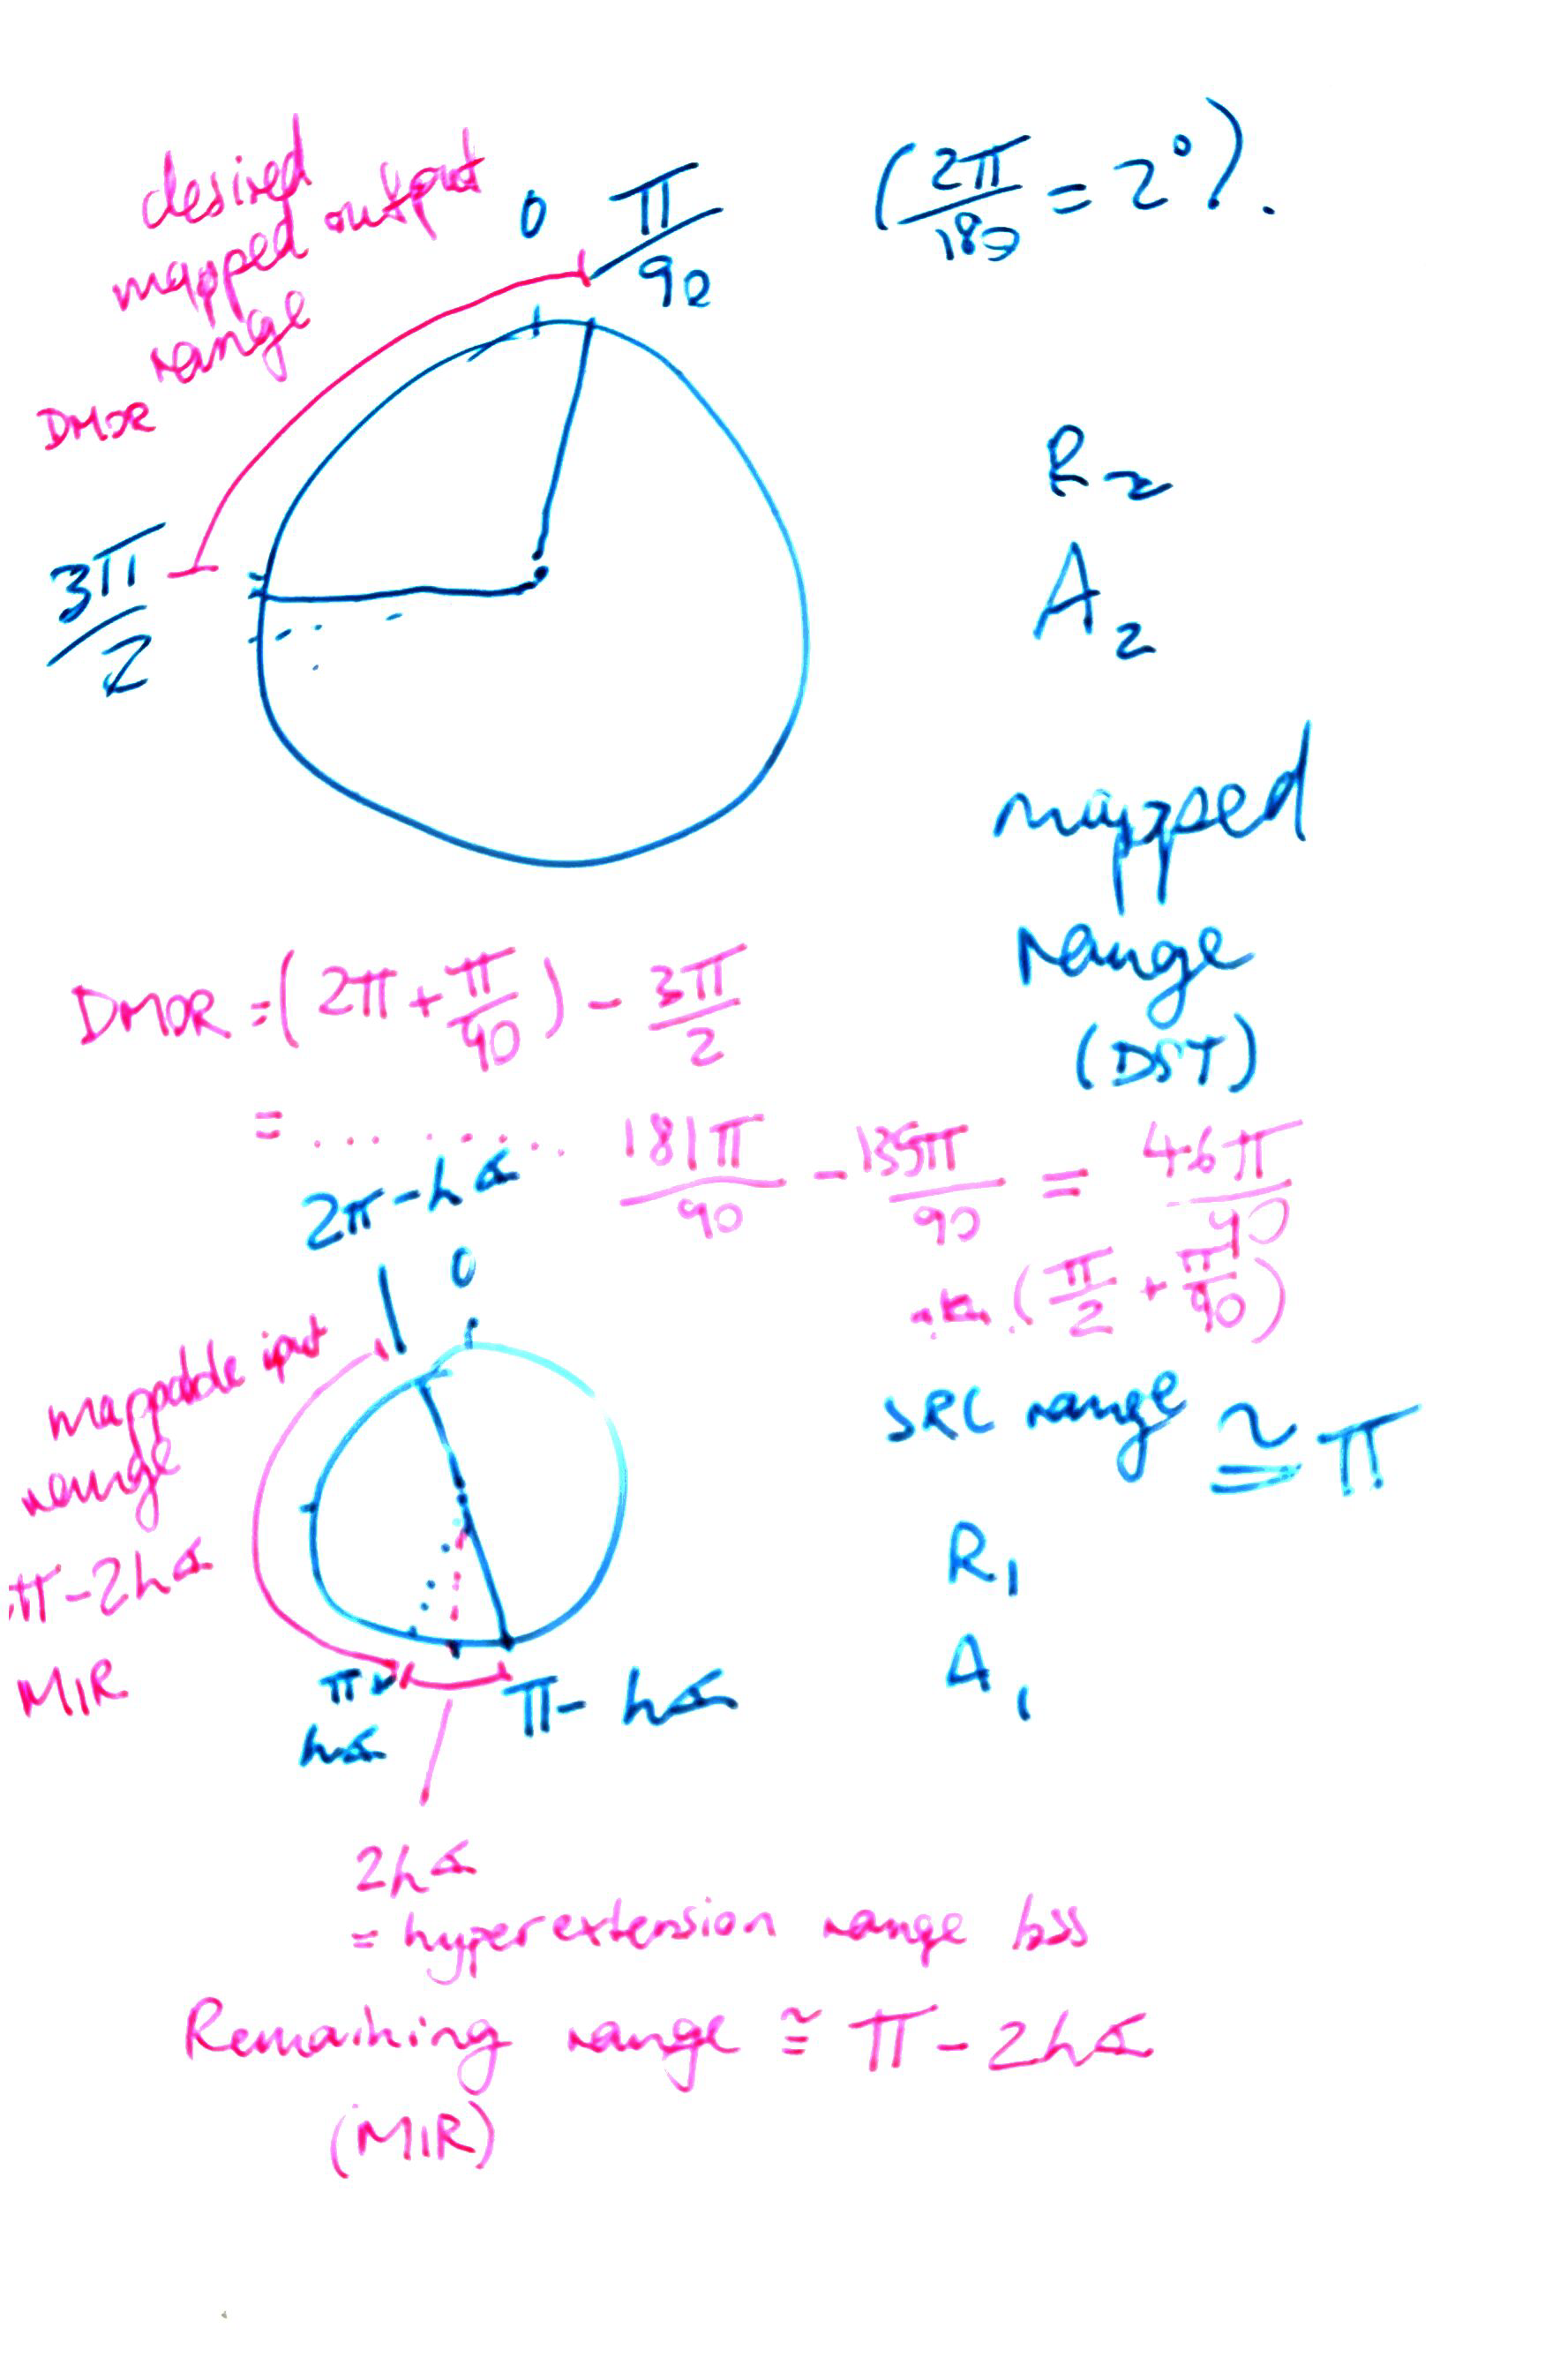 desired
mapped output
range
DMOR
0 π/90
(2π/180 = 2°).
3π/2
R2
A2
mapped
range
(DST)
DMOR = (2π + π/90) - 3π/2
= ......... 181π/90 - 135π/90 = 46π/90
(π/2 + π/90)
2π - h∡
0
mappable input
range
π - 2h∡
MIR
SRC range ≅ π
R1
A1
h∡
π - h∡
2h∡
= hyperextension range loss
Remaining range ≅ π - 2h∡
(MIR)